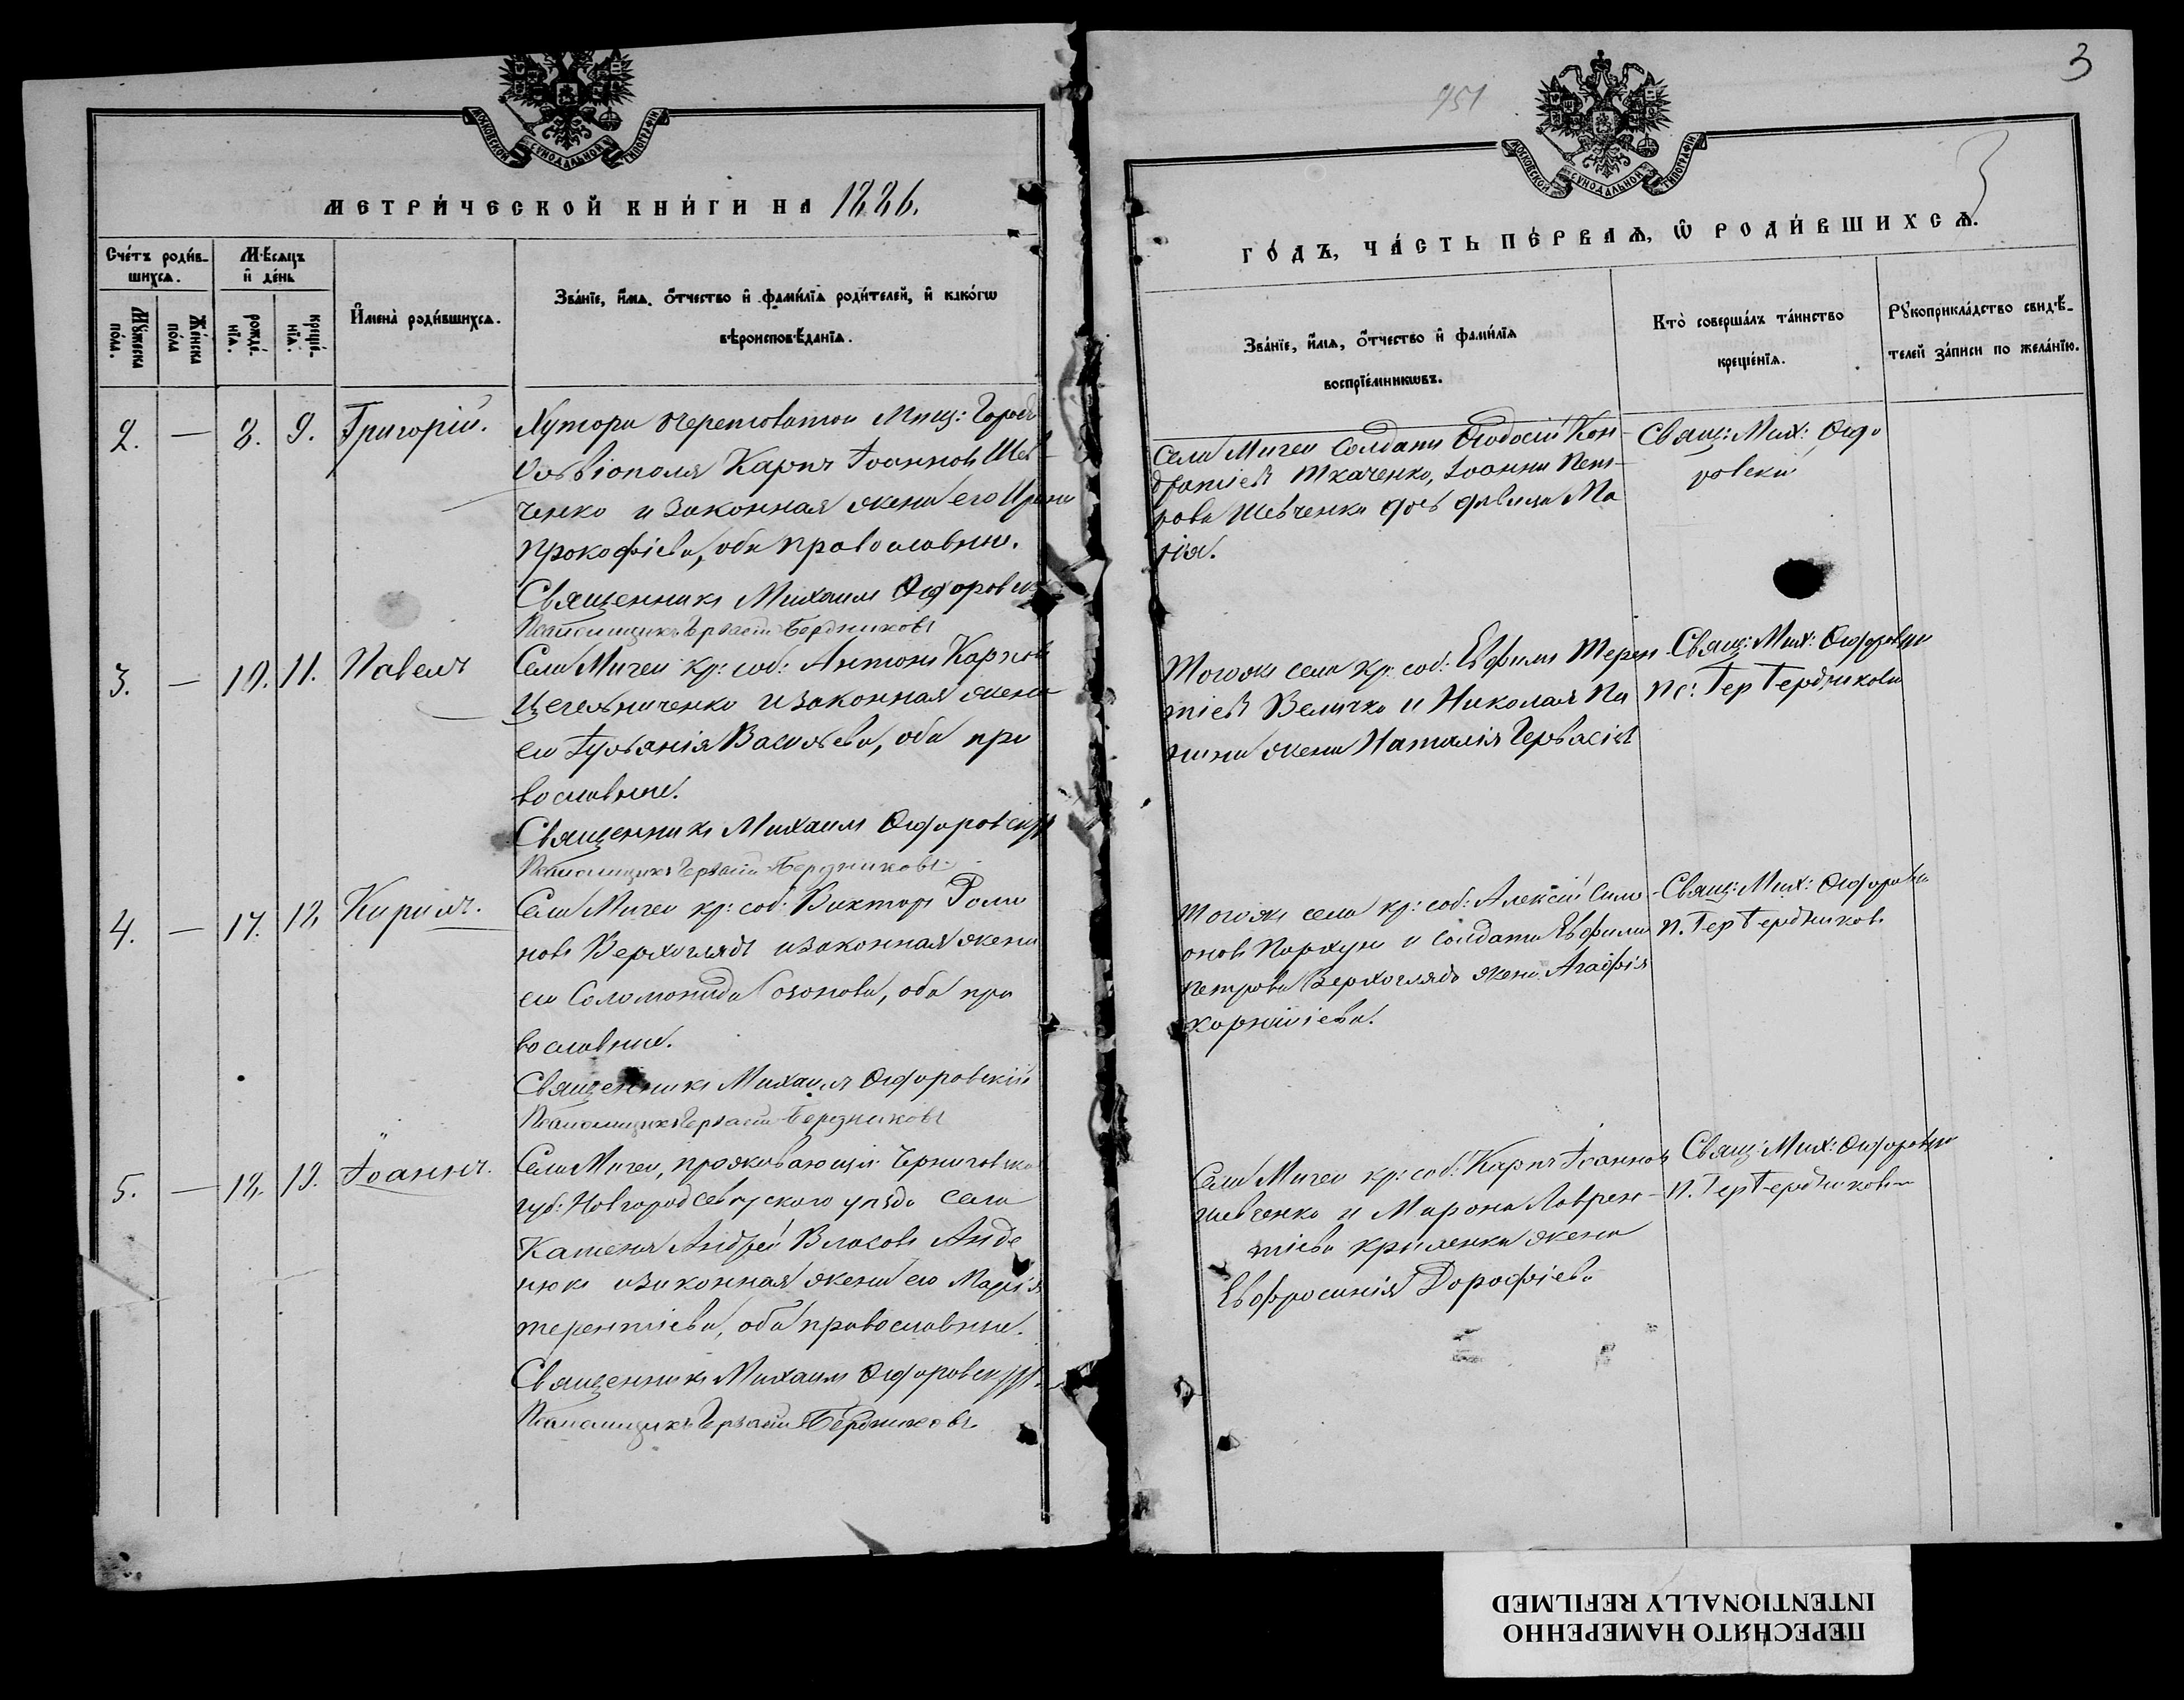 МОСКОВСКОЙ СѴНОДАЛЬНОЙ ТИПОГРАФІИ
МЕТРИ́ЧЕСКОЙ КНИ́ГИ НА 1886.
Сче́тъ роди́в-
шихсѧ.
Мѣ́сѧцъ
и҆ де́нь
Мꙋ́жеска
по́ла.
Же́нска
по́ла
рожде́-
нїѧ.
креще́-
нїѧ.
И҆мена̀ роди́вшихсѧ.
Зва́нїе, и҆́мѧ, ѻ҆́тчество и҆ фами́лїѧ роди́телей, и҆ како́гѡ
вѣроисповѣ́данїѧ.
2. — 8. 9. Григорій.
Хутора Черноватой Мѣщ: Города
Ольвіополя Карпъ Іоанновъ Шев-
ченко и законная жена его Ирина
Прокофіева, оба православные.
Священникъ Михаилъ
Псаломщикъ Гервасій Бердниковъ
3. — 10. 11. Павелъ
Села Мигеи кр: соб: Антонъ Карповъ
Цегельниченко и законная жена
его Гульянія Васильева, оба пра
вославные.
Священникъ Михаилъ
Псаломщикъ Гервасій Бердниковъ
4. — 17. 18. Кирилъ.
Села Мигеи кр: соб: Викторъ Рома
новъ Верхоглядъ и законная жена
его Соломонида Созонова, оба пра
вославные.
Священникъ Михаилъ
Псаломщикъ Гервасій Бердниковъ
5. — 18. 19. Іоаннъ.
Села Мигеи, проживающій Черниговской
губ: Новгородсеверскаго уѣзда села
Каменя Андрей Власовъ
и законная жена его Марія
Терентіева, оба православные.
Священникъ Михаилъ
Псаломщикъ Гервасій Бердниковъ
951
3
МОСКОВСКОЙ СѴНОДАЛЬНОЙ ТИПОГРАФІИ
3
ГО́ДЪ, ЧА́СТЬ ПЕ́РВАѦ, Ѽ РОДИ́ВШИХСѦ.
Зва́нїе, и҆́мѧ, ѻ҆́тчество и҆ фами́лїѧ
воспрїе́мникѡвъ.
Кто̀ соверша́лъ та́инство
креще́нїѧ.
Рꙋкоприкла́дство свидѣ́-
телей за́писи по жела́нїю.
Села Мигеи Солдатъ Ѳеодосій Кон-
дратіевъ Ткаченко, Іоанна Пет-
рова Шевченка дочь дѣвица Ма
рія.
Свящ: Мих:
Тогожъ села кр: соб: Евфимъ Терен
тіевъ Величко и Николая
жена Наталія Гервасіева
Свящ: Мих:
Пс: Гер Бердниковъ
Тогожъ села кр: соб: Алексій Симе-
оновъ Пархунъ и солдата Евфима
Петрова Верхоглядъ жена Агафія
Корниліева.
Свящ: Мих:
П. Гер Бердниковъ
Села Мигеи кр: соб: Карпъ Іоанновъ
Шевченко и Мирона Лаврен-
тіева Криленка жена
Евфросинія Дорофіева
Свящ: Мих:
П. Гер Бердниковъ
ПЕРЕСНЯТО НАМЕРЕННО
INTENTIONALLY REFILMED